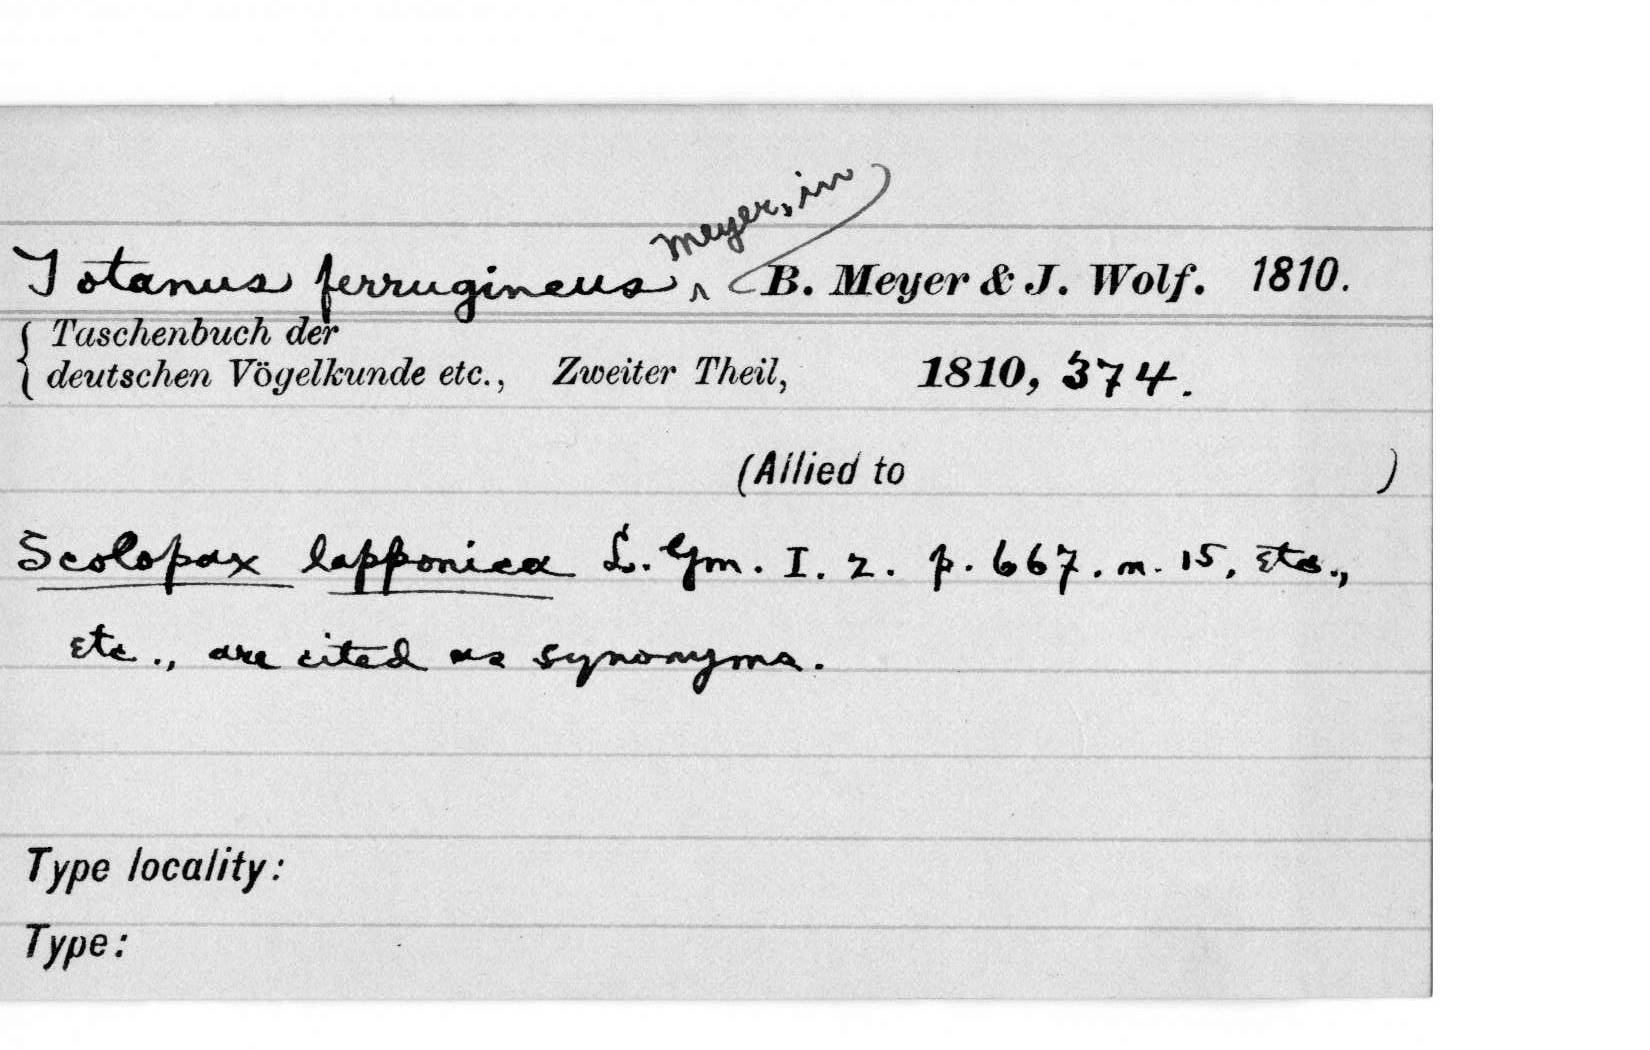 Meyer, in
Totanus ferrugineus ^ B. Meyer & J. Wolf. 1810.
{ Taschenbuch der
deutschen Vögelkunde etc., Zweiter Theil, 1810, 374.
(Allied to )
Scolopax lapponica L. Gm. I. 2. p. 667. n. 15, etc.,
etc., are cited as synonyms.
Type locality:
Type: